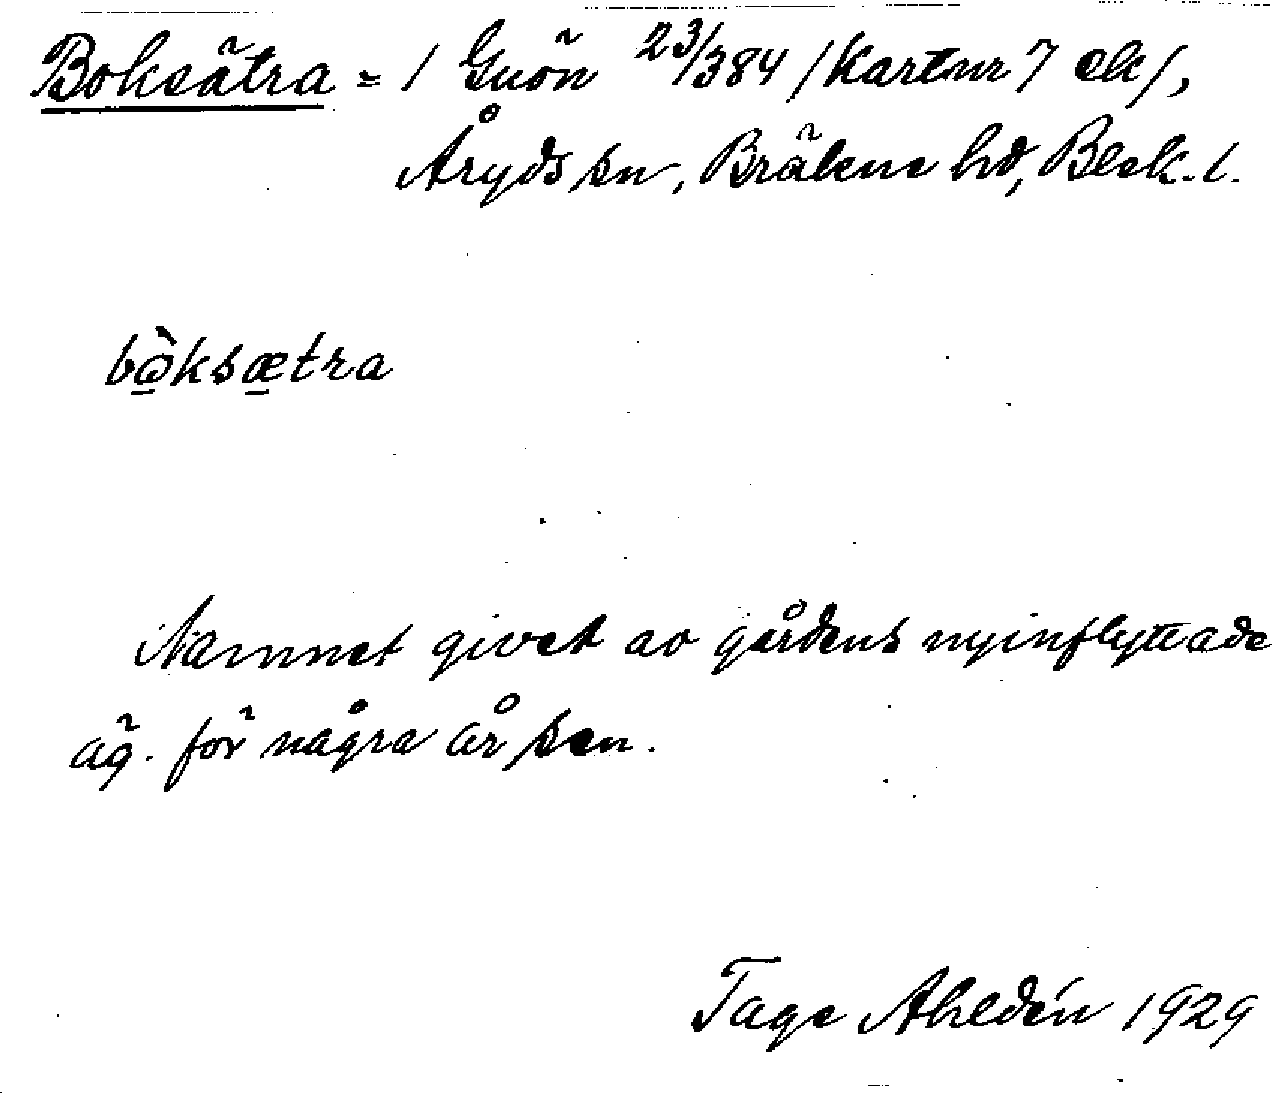 Boksätra = 1 Guön 23/384 /Kartnr 7 ek/,
Åryds sn, Bräkne hd, Blek. l.
bo̱̊̀ksæ̱tra
Namnet givet av gårdens nyinflyttade
äg. för några år sen.
Tage Ahldén 1929